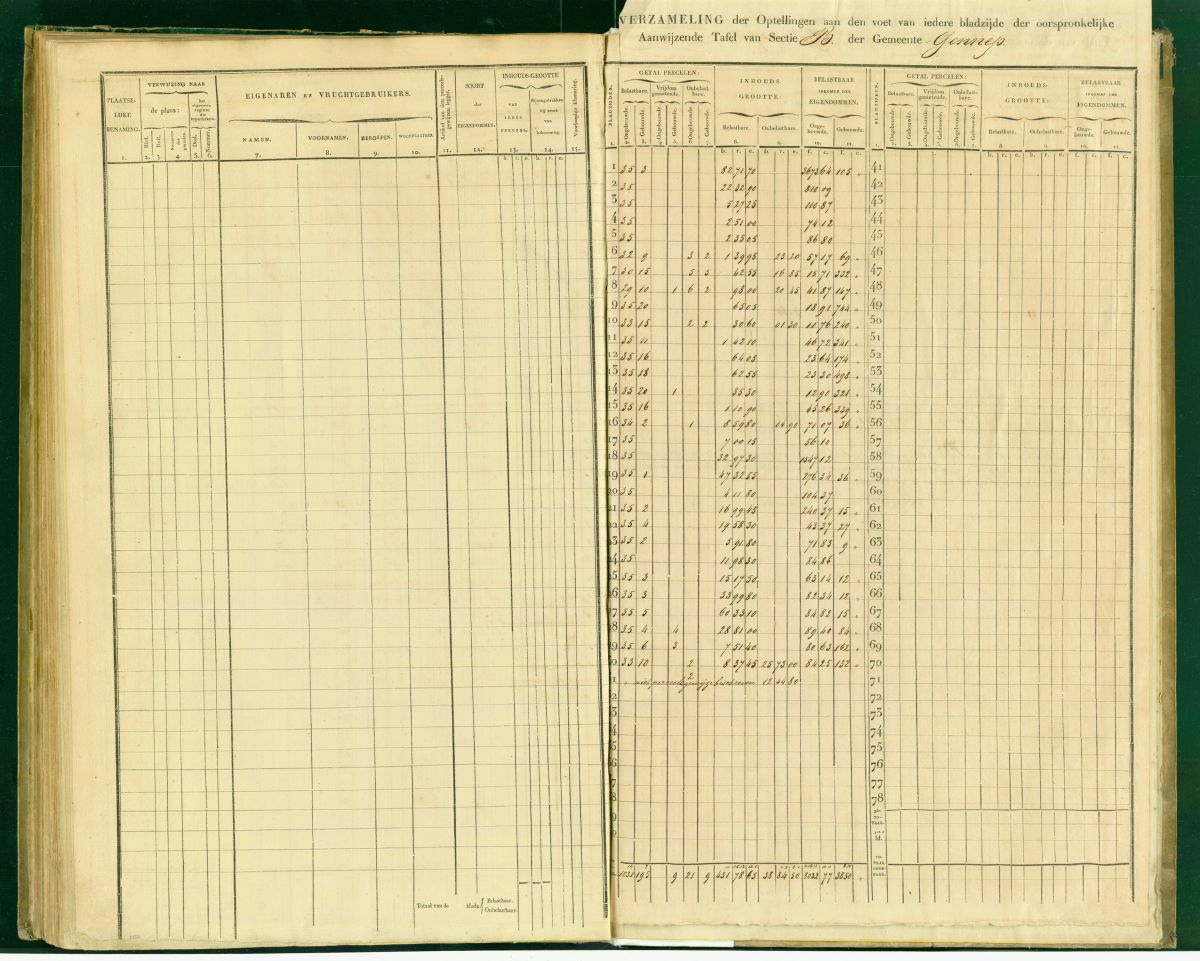 VERZAMELING der Optellingen aan den voet van iedere bladzijde der oorspronkelijke
Aanwijzende Tafel van Sectie B. der Gemeente Gennep.
PLAATSELIJKE BENAMING. 1.
VERWIJZING NAAR
de plans:
EIGENAREN EN VRUCHTGEBRUIKERS.
NAMEN. VOORNAMEN. BEROEPEN. WOONPLAATSEN.
7. 8. 9. 10.
SOORT der EIGENDOMMEN.
11. 12. 13. 14. 15.
INHOUDS-GROOTTE
Totaal van de bladz. Belastbare. Onbelastbare.
BLADZIJDEN.
GETAL PERCELEN: INHOUDS GROOTTE: BELASTBAAR INKOMEN DER EIGENDOMMEN.
Belastbare. Onbelastbare. Belastbare. Onbelastbare. Ongebouwde. Gebouwde.
1 35 3 82 71 70 3673 64 105
2 35 22 32 90 810 09
3 35 5 27 25 110 87
4 35 2 51 00 74 12
5 35 2 35 05 86 80
6 32 9 3 2 1 39 95 23 20 57 17 69
7 30 15 5 3 42 55 16 85 15 71 332
8 29 10 1 6 2 98 00 20 45 41 87 147
9 35 20 65 05 18 91 744
10 33 15 2 2 30 60 01 30 11 76 240
11 35 11 1 42 10 46 72 341
12 35 16 64 05 23 64 174
13 35 18 62 55 23 30 498
14 35 20 1 35 30 12 90 321
15 35 16 1 10 90 45 26 339
16 34 2 1 8 59 80 14 90 71 07 36
17 35 7 00 15 56 10
18 35 32 97 30 1347 12
19 35 1 47 32 55 276 34 36
20 35 4 11 80 104 37
21 35 2 16 99 45 240 37 15
22 35 4 19 58 30 43 37 27
23 35 2 5 91 80 71 83 9
24 35 11 98 30 84 86
25 35 3 15 17 50 63 14 12
26 35 3 33 99 80 82 34 12
27 35 5 60 33 10 84 82 15
28 35 4 4 28 81 00 89 40 84
29 35 6 3 7 51 40 80 63 162
30 33 10 2 8 37 45 25 73 00 84 25 132
niet perceelsgewijze beschreven 2 12 44 80
1031 195 9 21 9 431 78 65 38 84 50 8032 77 3850
BLADZIJDEN.
GETAL PERCELEN: INHOUDS-GROOTTE: BELASTBAAR INKOMEN DER EIGENDOMMEN.
Belastbare. Onbelastbare. Belastbare. Onbelastbare. Ongebouwde. Gebouwde.
41
42
43
44
45
46
47
48
49
50
51
52
53
54
55
56
57
58
59
60
61
62
63
64
65
66
67
68
69
70
71
72
73
74
75
76
77
78